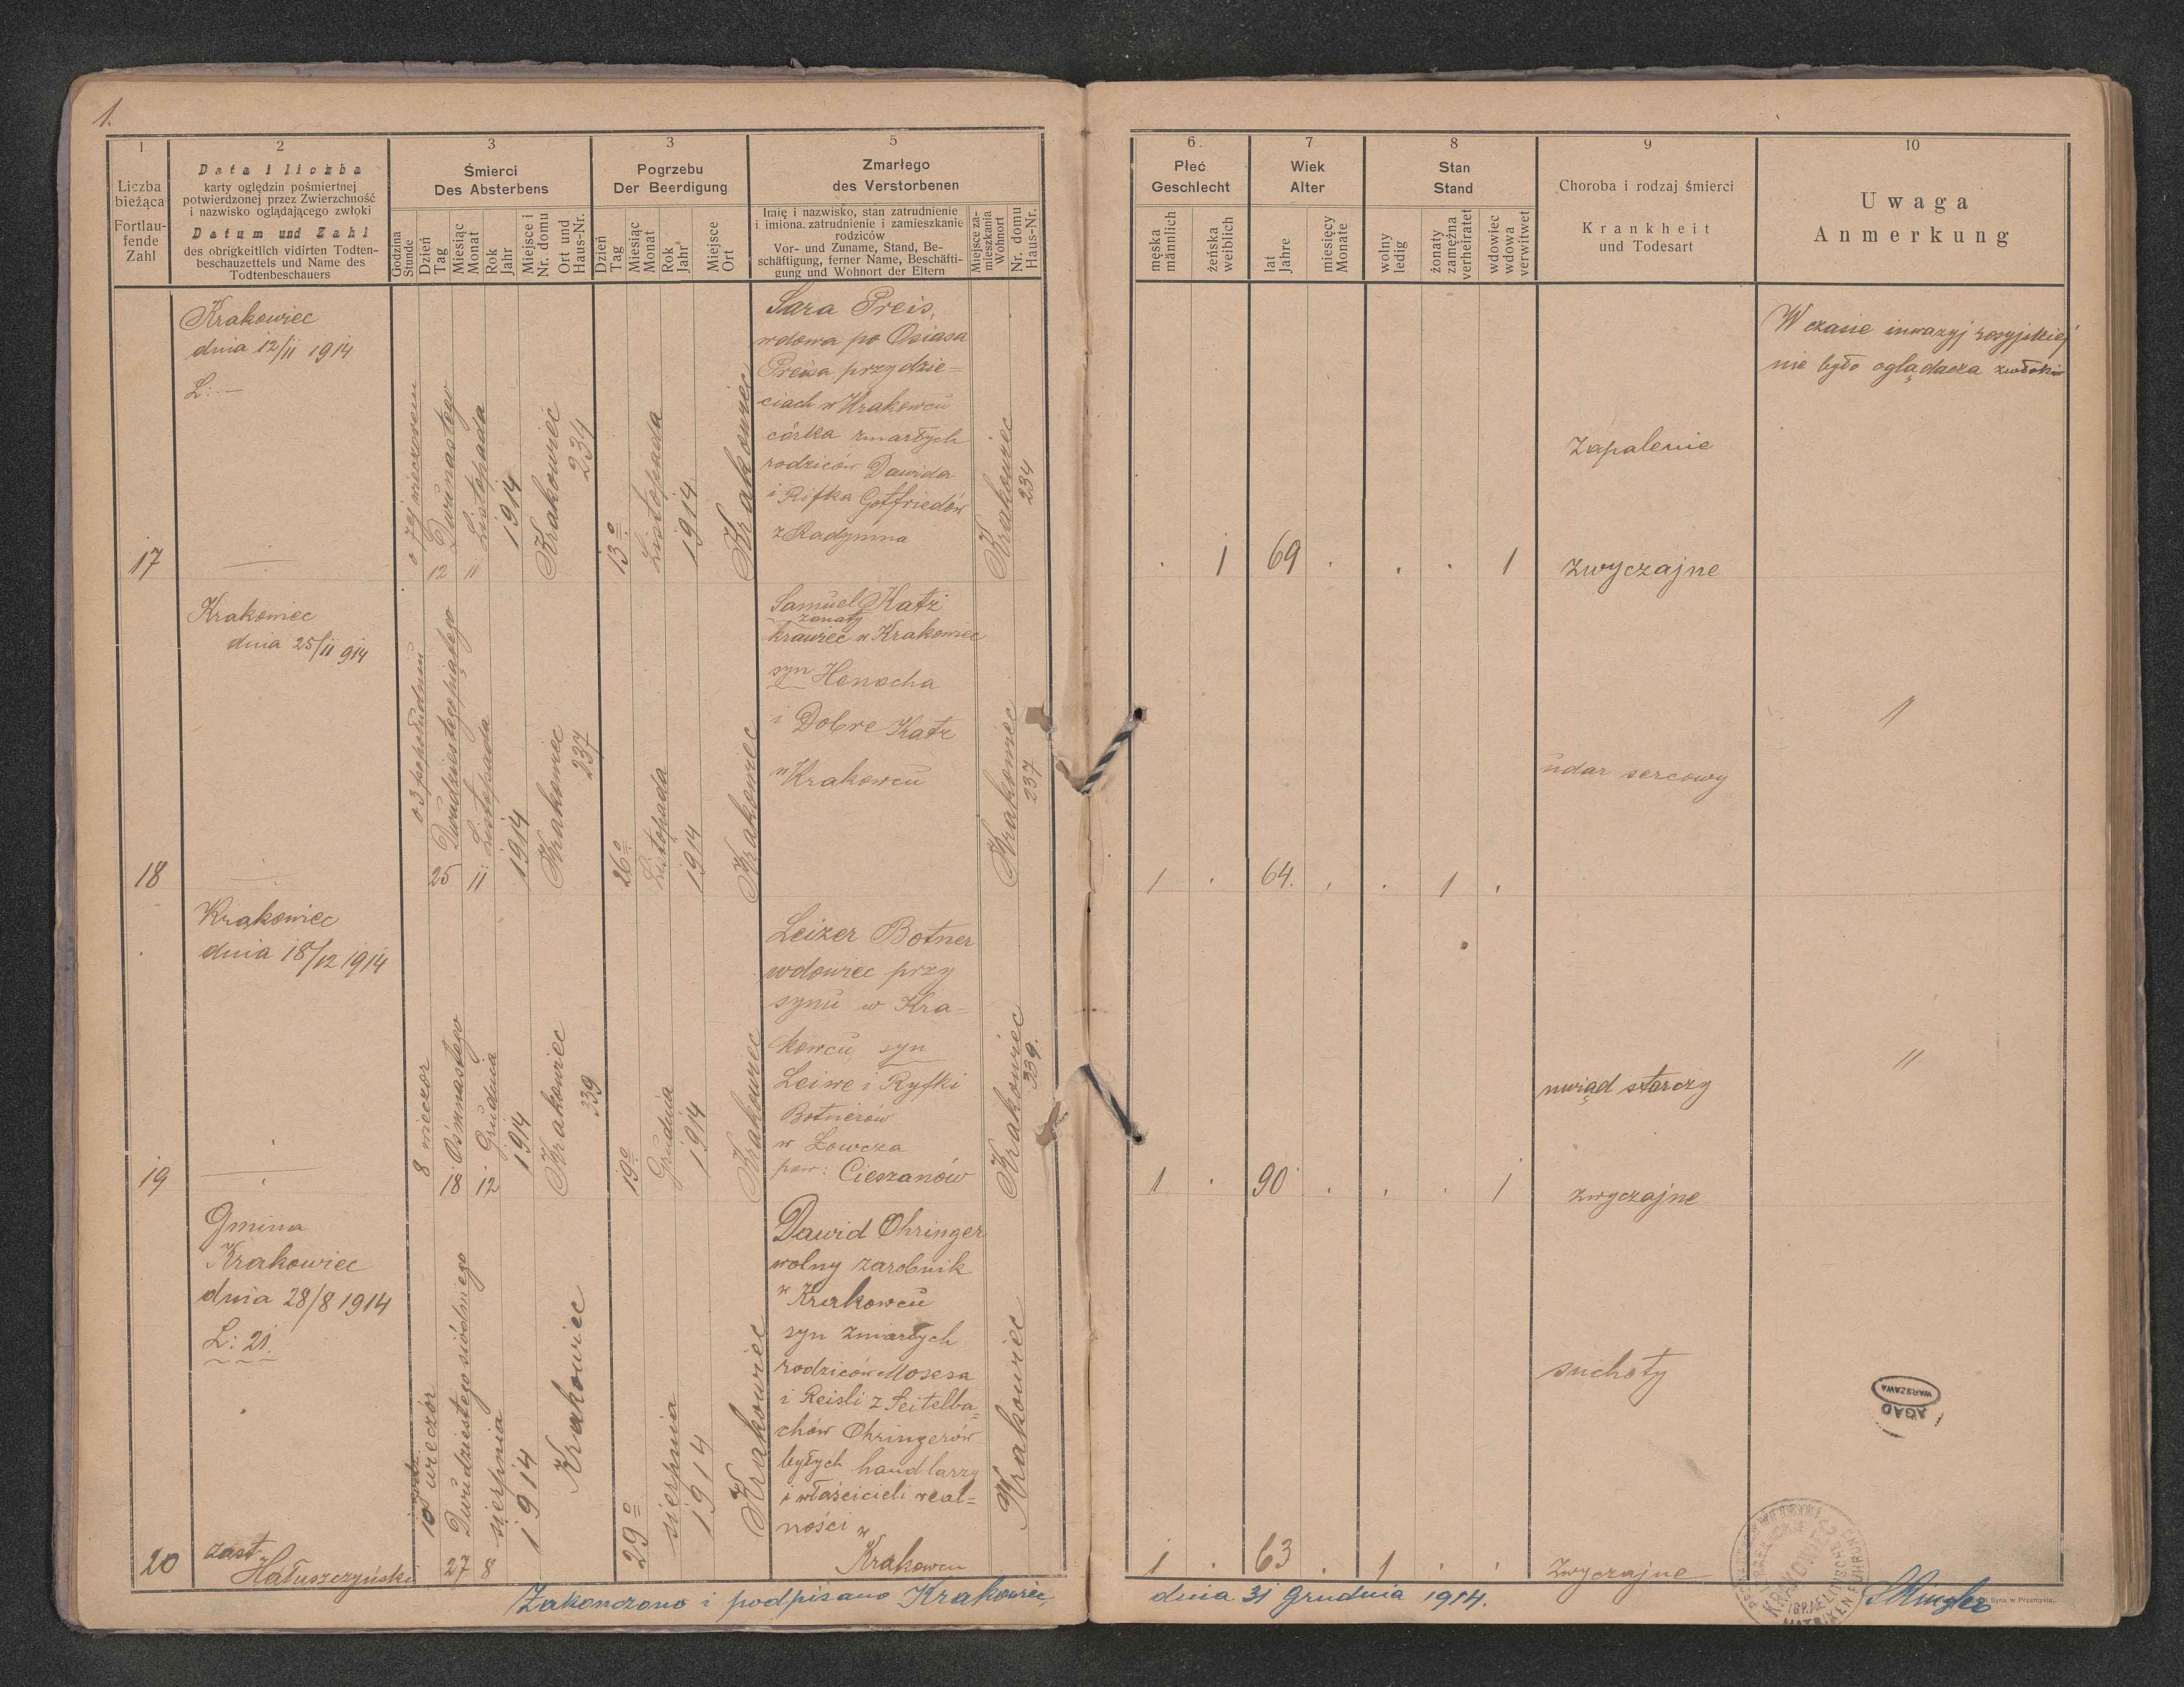 1.
1
2
3
3
5
Liczba
bieżąca
Fortlau-
fende
Zahl
Data i liczba
karty oględzin pośmiertnej
potwierdzonej przez Zwierzchność
i nazwisko oglądającego zwłoki
Datum und Zahl
des obrigkeitlich vidirten Todten-
beschauzettels und Name des
Todtenbeschauers
Śmierci
Des Absterbens
Godzina
Stunde
Dzień
Tag
Miesiąc
Monat
Rok
Jahr
Miejsce i
Nr. domu
Ort und
Haus-Nr.
Pogrzebu
Der Beerdigung
Dzień
Tag
Miesiąc
Monat
Rok
Jahr
Miejsce
Ort
Zmarłego
des Verstorbenen
Imię i nazwisko, stan zatrudnienie
i imiona, zatrudnienie i zamieszkanie
rodziców
Vor- und Zuname, Stand, Be-
schäftigung, ferner Name, Beschäfti-
gung und Wohnort der Eltern
Miejsce za-
mieszkania
Wohnort
Nr. domu
Haus-Nr.
6.
7
8
9
10
Płeć
Geschlecht
męska
männlich
żeńska
weiblich
Wiek
Alter
lat
Jahre
miesięcy
Monate
Stan
Stand
wolny
ledig
żonaty
zamężna
verheiratet
wdowiec
wdowa
verwitwet
Choroba i rodzaj śmierci
Krankheit
und Todesart
Uwaga
Anmerkung
17
Krakowiec
dnia 12/11 1914
L: —
o 7ej wieczorem
Dwunastego
12
Listopada
11
1914
Krakowiec
234
13o
Listopada
1914
Krakowiec
Sara Preis,
wdowa po Osiasa
Preisa, przy dzie=
ciach w Krakowcu
córka zmarłych
rodziców Dawida
i Rifka Gotfriedów
z Radymna
Krakowiec
234
1
69
1
Zapalenie
zwyczajne
W czasie inwazyj rosyjskiej
nie było oglądacza zwłok
18
Krakowiec
dnia 25/11 914
o 3 po południu
Dwudziestego piątego
25
Listopada
11
1914
Krakowiec
237
26o
Listopada
1914
Krakowiec
Samuel Katz
żonaty
krawiec w Krakowiec
syn Henocha
i Dobre Katz
w Krakowcu
Krakowiec
237
1
64
1
udar sercowy
"
19
Krakowiec
dnia 18/12 1914
8 wieczor
Ośmnastego
18
Grudnia
12
1914
Krakowiec
339
19o
Grudnia
1914
Krakowiec
Leizer Botner
wdowiec przy
synu w Kra=
kowcu, syn
Leiwe i Ryfki
Botnerów
w Łowcza
pow: Cieszanów
Krakowiec
339.
1
90
1
uwiąd starczy
zwyczajne
"
20
Gmina
Krakowiec
dnia 28/8 1914
L: 21.
zast.
Hałuszczyński
10 wieczór
Dwudziestego siódmego
27
sierpnia
8
1914
Krakowiec
29o
sierpnia
1914
Krakowiec
Dawid Ohringer
wolny zarobnik
w Krakowcu
syn zmarłych
rodziców Mosesa
i Reisli z Seitelba=
chów Ohringerów
byłych handlarzy
i właścicieli real=
ności w
Krakowcu
Krakowiec
1
63
1
suchoty
zwyczajne
AGAD
WARSZAWA
Zakonczono i podpisano Krakowiec,
dnia 31 Grudnia 1914.
Syna w Przemyślu.